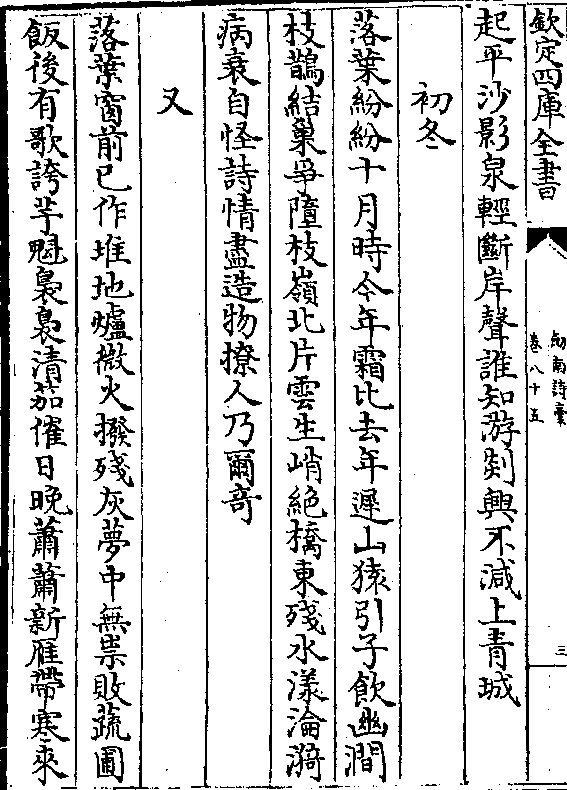 欽定四庫全書
劍南詩稾
卷八十五
三
起平沙影泉輕斷岸聲誰知游剡興不減上青城
初冬
落葉紛紛十月時今年霜比去年遲山猿引子飲幽澗
枝鵲結巢爭障枝嶺北片雲生峭絶橋東殘水漾淪漪
病衰自怪詩情盡造物撩人乃爾竒
又
落葉窗前已作堆地爐微火撥殘灰夢中無祟敗蔬圃
飯後有歌誇芋魁裊裊清笳催日晚蕭蕭新雁帶寒來